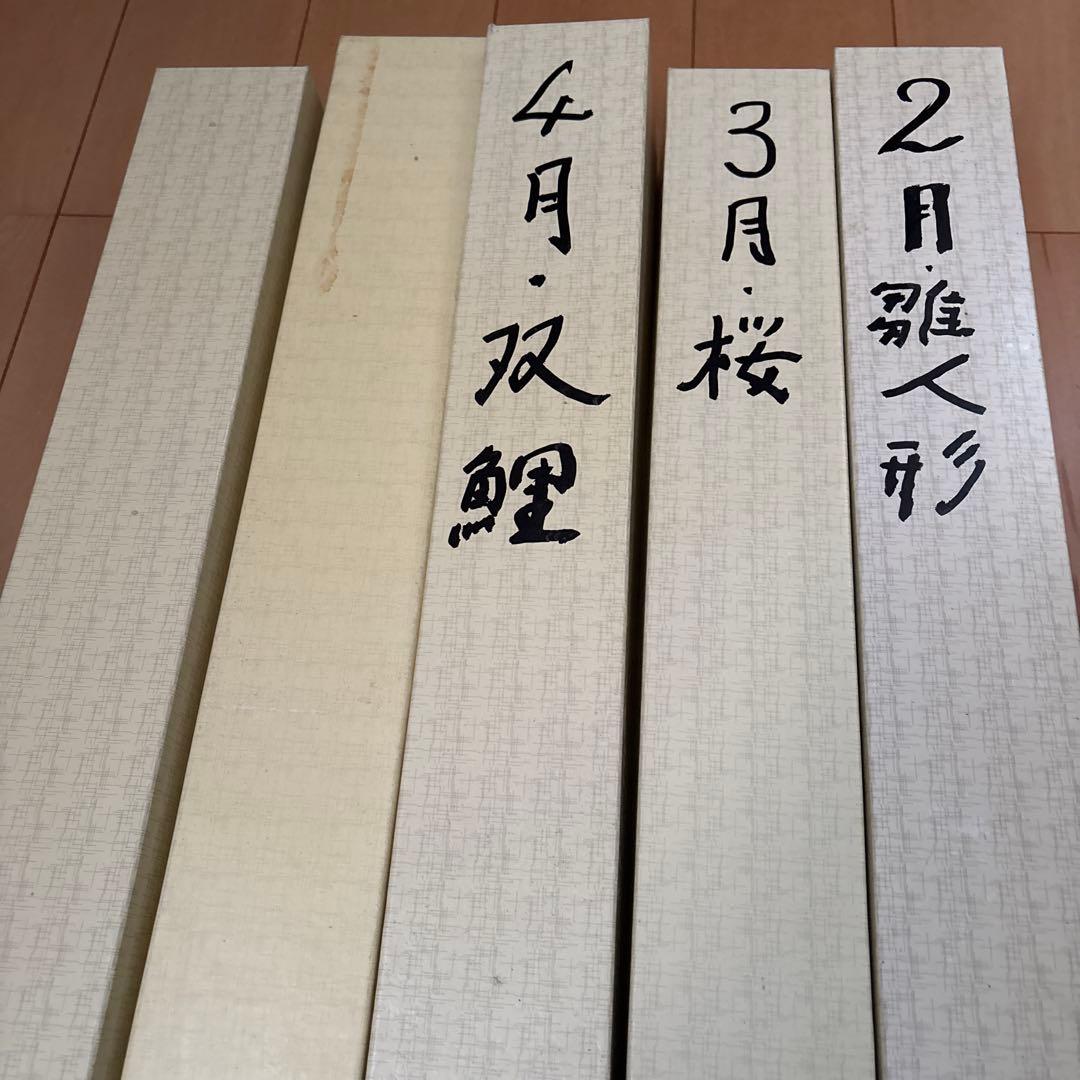 2月・雛人形
3月・桜
4月・双鯉